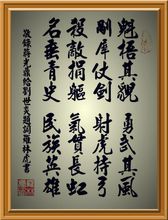 魁梧其貌 勇武其風
犀仗劍 射虎持弓
殺敵捐軀 氣貫長虹
名垂青史 民族英雄
敬錄蔣光鼐給劉世焱題詞 羅林虎書